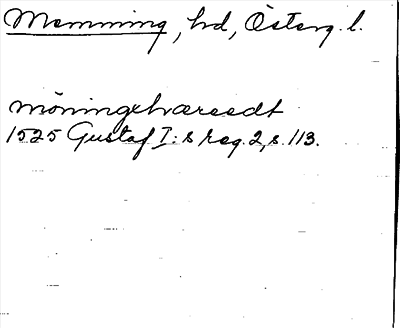 Memming, hd, Österg. l.
möningehæredt
1525 Gustaf I:s reg. 2, s. 113.